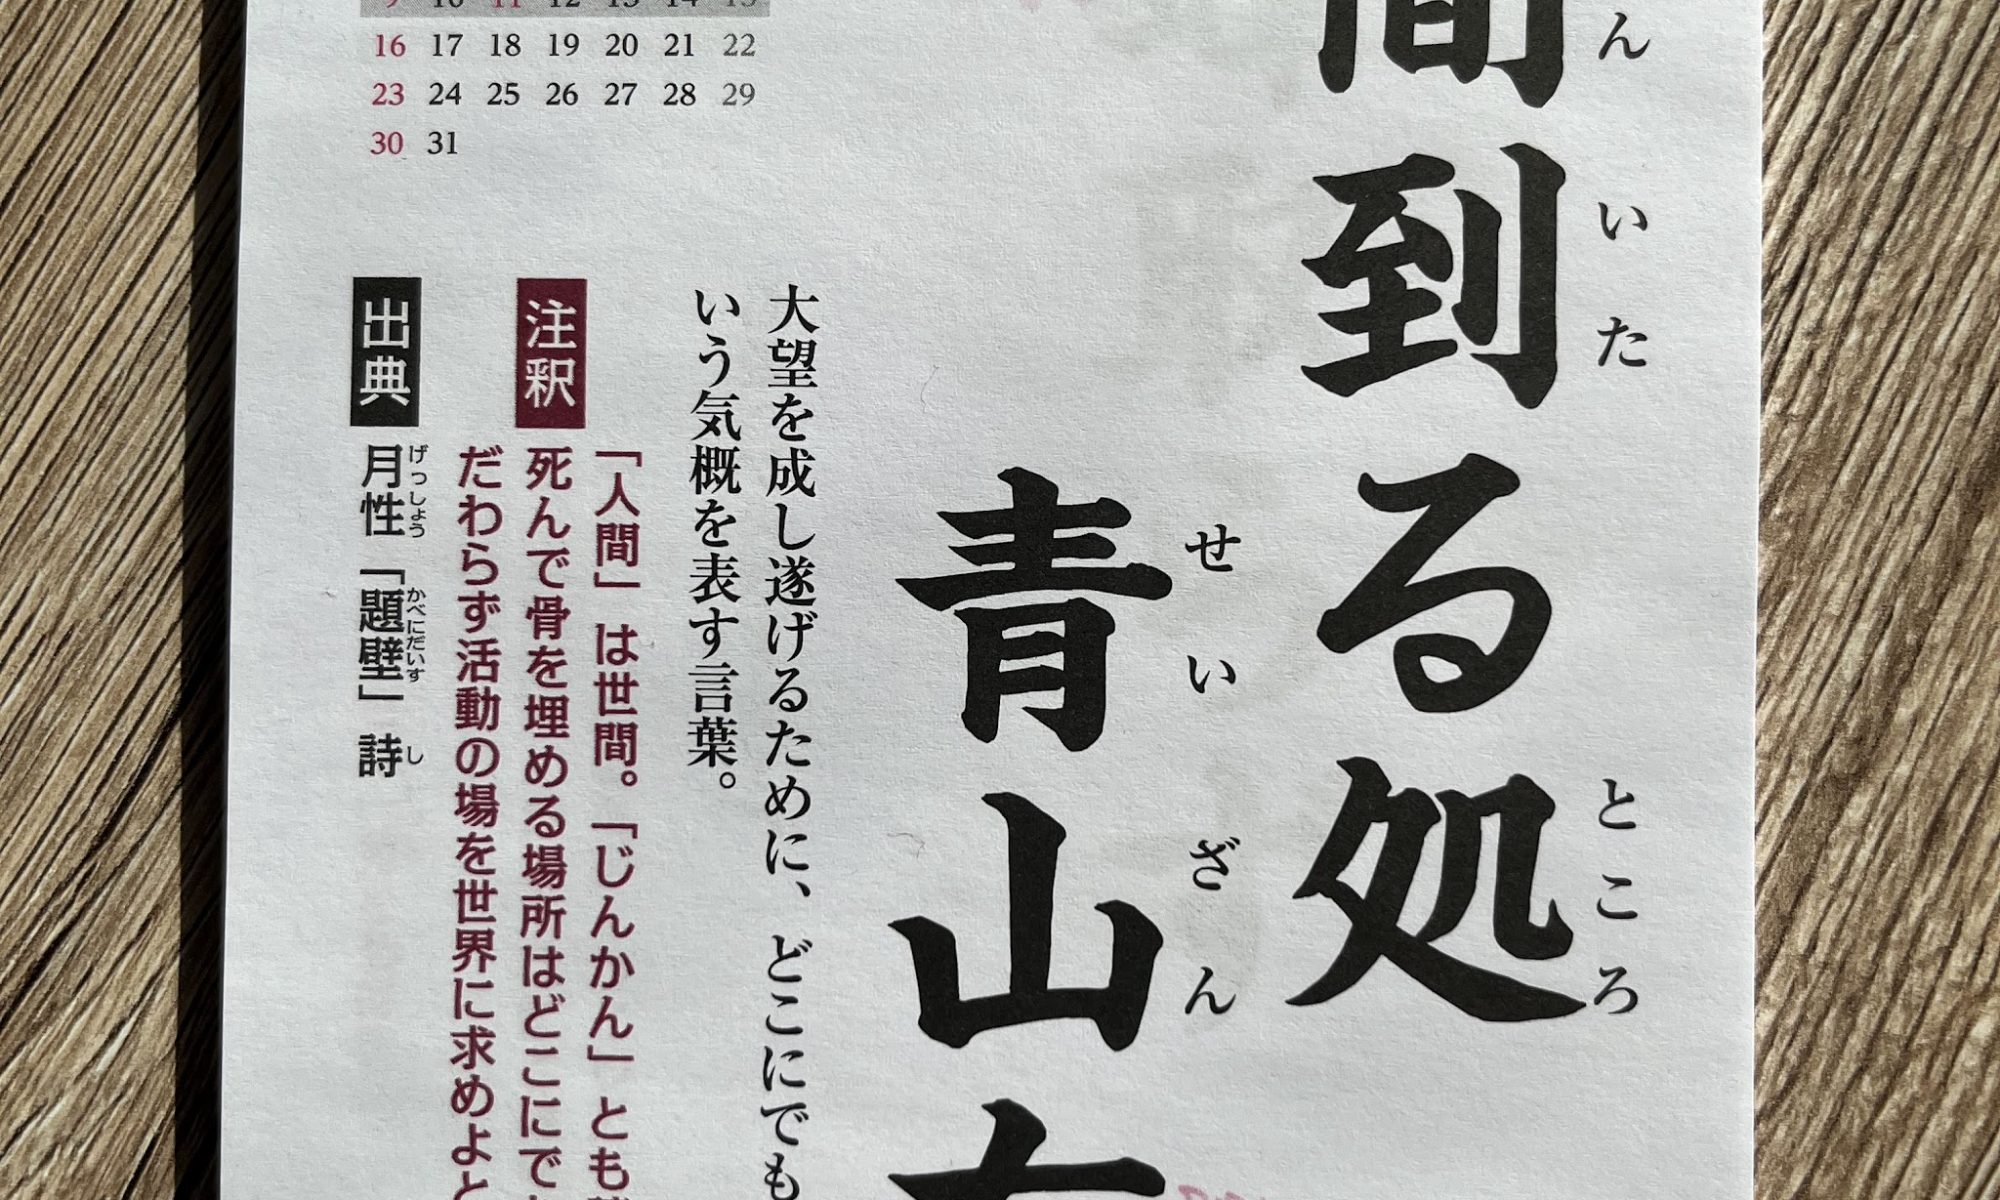 9 10 11 12 13 14 15
16 17 18 19 20 21 22
23 24 25 26 27 28 29
30 31
間到る処
んいたところ
青山
せいざん
大望を成し遂げるために、どこにでも
いう気概を表す言葉。
注釈
「人間」は世間。「じんかん」とも
死んで骨を埋める場所はどこにで
だわらず活動の場を世界に求めよと
出典
月性「題壁」詩
げっしょう かべにだいす し